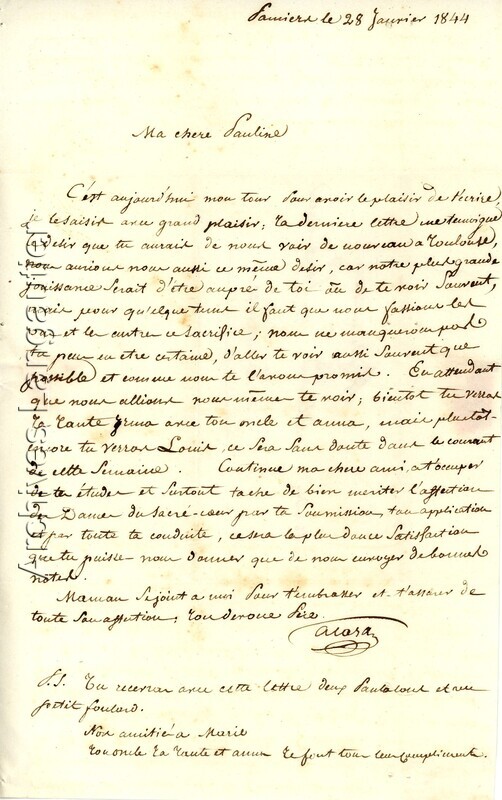 Pamiers le 28 Janvier 1844
Ma chere Pauline
C'est aujourd'hui mon tour pour avoir le plaisir de t'écrire,
je le saisit avec grand plaisir; ta derniere lettre me temoigne
le desir que tu aurait de nous voir de nouveau a Toulouse,
nous aurions nous aussi ce même desir, car notre plus grande
jouissance serait d'être auprès de toi ou de te voir souvent,
mais pour quelque tems il faut que nous fassions les
uns et les autres ce sacrifice; nous ne manquerons pas
tu peux en etre certaine, d'aller te voir aussi souvent que
possible et comme nous te l'avons promit. En attendant
que nous allions nous meme te voir; bientot tu verras
ta tante Irma avec ton oncle et anna, mais plutot
encore tu verras Louis, ce sera sans doute dans le courant
de cette semaine. Continue ma chere ami, a t'occuper
de tes études et surtout tache de bien meriter l'affection
des Dames du Sacré-coeur par ta soumission, ton application
et par toute ta conduite, ce sera la plus douce satisfaction
que tu puisse nous donner que de nous envoyer de bonnes
notes.
Maman se joint a moi pour t'embrasser et t'assurer de
toute son affection; ton devoué Père
P.S. Tu recevras avec cette lettre deux Pantalons et un
petit foulard.
Nos amitié a Marie
ton oncle ta tante et anna te font tous leur compliments.